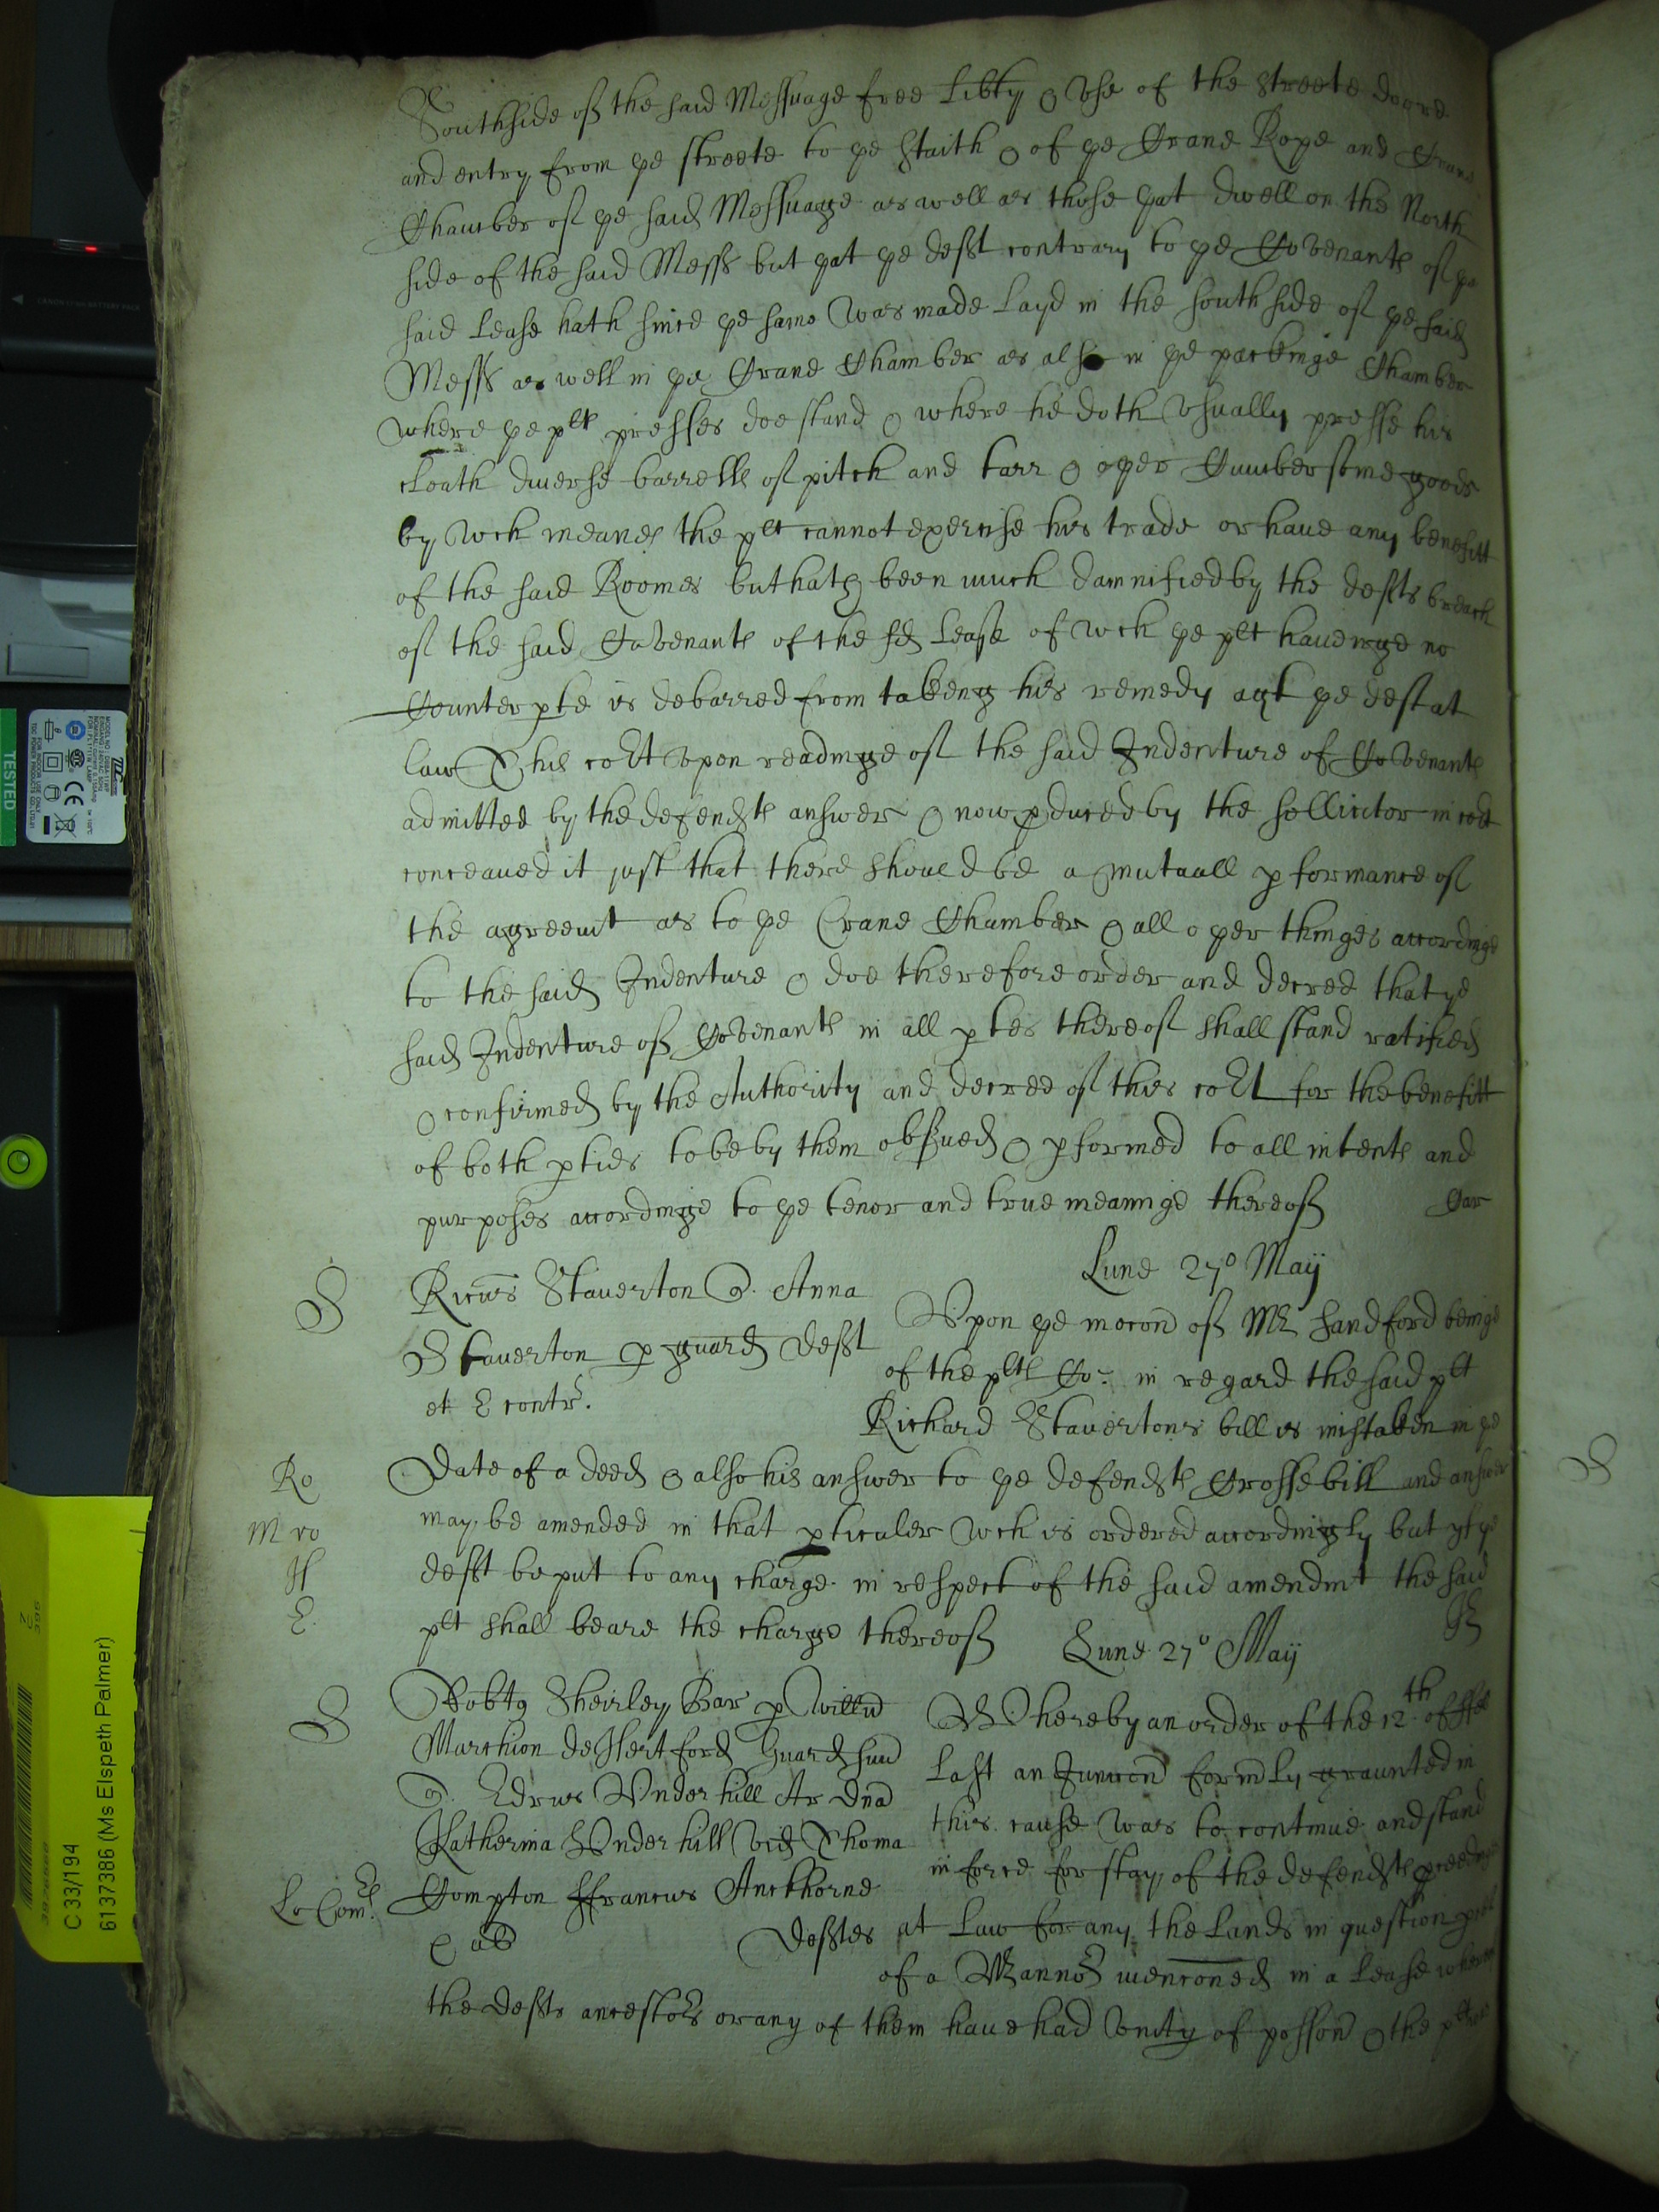 Southside of the said Messuage free libty & vse of the streete doore
and entry from ye streete to ye staith & of ye Crane Rope and Crane
Chamber of ye said Messuage as well as those yat dwell on the North
side of the said Mess but yat ye deft contrary to ye Covenants of ye
said Lease hath since ye same was made Layd in the south side of ye said
Mess as well in ye Crane Chamber as also in ye packinge Chamber
where ye plt presses doe stand & where he doth vsually presse his
cloath diuerse barrells of pitch and tarr & oyer Cumbersome goods
by wch meanes the plt cannot exercise his trade or haue any benefitt
of the said Roomes but hath been much damnified by the defts breach
of the said Covenants of the sd Lease of wch ye plt haueinge no
Counterpte is debarred from takeing his remedy agt ye deft at
law This cort vpon readinge of the said Indenture of Covenants
admitted by the defendts answer & now pduced by the sollicitor in cort
conceaued it just that there should be a mutuall pformance of
the agreemt as to ye Crane Chamber & all oyer thinges accordinge
to the said Indenture & doe therefore order and decree that ye
said Indenture of Covenants in all ptes thereof shall stand ratified
& confirmed by the Authority and decree of this cort for the benefitt
of both pties to be by them obserued & pformed to all intents and
purposes accordinge to ye tenor and true meaninge thereof Car
Lune 27o Maij
S Ricus Stauerton q. Anna
Stauerton p guard deft
et e contr.
Vpon ye mocon of Mr Sandford beinge
of the plts Co: in regard the said plt
Richard Stauertons bill is mistaken in ye
Ro Date of a deed & also his answer to ye defendts Crosse bill and answer
M ro may be amended in that pticuler wch is ordered accordingly but yf ye
H deft be put to any charge in respect of the said amendmt the said
E. plt shall beare the charge thereof
Lune 27o Maij
S Robtus Sheirley Bar p Willm
Marchion de Hertford Guard suu
q. Edrus Vnderhill Ar Dna
Katherina Vnderhill vid Thoma
Compton ffrancus Anckhorne
& al deftes
Whereby an order of the 12th of
last an Iuncon formly graunted in
this cause was to continue and stand
in force for stay of the defendts pceedings
at law for any the lands in question
of a Mannor menconed in a lease whereof
the defts ancestors or any of them haue had vnity of posson & the
C 33/194
6137386 (Ms Elspeth Palmer)
TESTED
CANON LI-ION BATTERY PACK